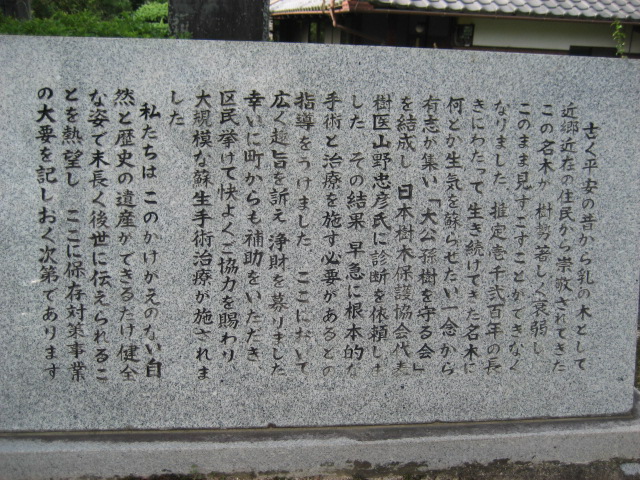 古く平安の昔から乳の木として
近郷近在の住民から崇敬されてきた
この名木が 樹勢著しく衰弱し
このまま見すごすことができなく
なりました 推定壱千弐百年の長
きにわたって 生き続けてきた名木に
何とか生気を蘇らせたい一念から
有志が集い「大公孫樹を守る会」
を結成し 日本樹木保護協会代表
樹医山野忠彦氏に診断を依頼しま
した その結果 早急に根本的な
手術と治療を施す必要があるとの
指導をうけました ここにおいて
広く趣旨を訴え 浄財を募りました
幸いに町からも補助をいただき、
区民挙げて快よくご協力を賜わり、
大規模な蘇生手術治療が施されま
した
私たちは このかけがえのない自
然と歴史の遺産ができるだけ健全
な姿で末長く後世に伝えられるこ
とを熱望し ここに保存対策事業
の大要を記しおく次第であります